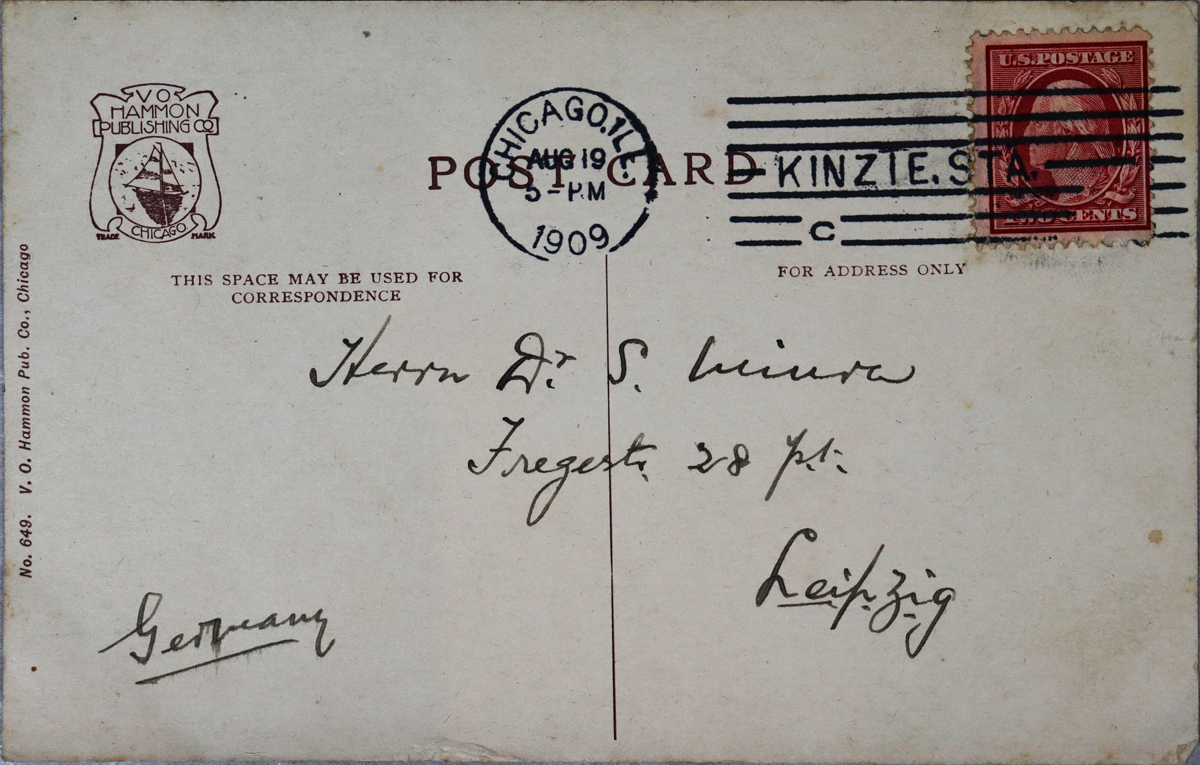 V O
HAMMON
PUBLISHING CO
CHICAGO
TRADE MARK
POST CARD
CHICAGO, ILL.
AUG 19
5-PM
1909
KINZIE. STA.
C
U.S. POSTAGE
TWO CENTS
THIS SPACE MAY BE USED FOR
CORRESPONDENCE
FOR ADDRESS ONLY
No. 649. V. O. Hammon Pub. Co., Chicago
Herrn Dr. S. Minra
Fregestr. 28 pt.
Leipzig
Germany